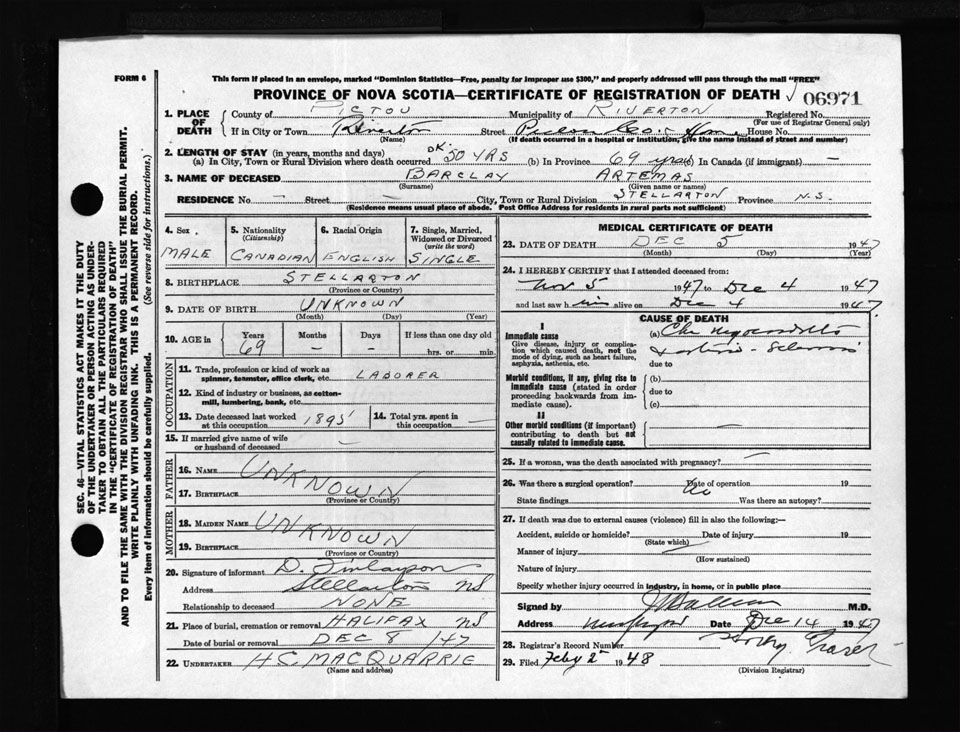 FORM 6
This form if placed in an envelope, marked "Dominion Statistics—Free, penalty for improper use $300," and properly addressed will pass through the mail "FREE"
PROVINCE OF NOVA SCOTIA—CERTIFICATE OF REGISTRATION OF DEATH
06971
SEC. 46—VITAL STATISTICS ACT MAKES IT THE DUTY
OF THE UNDERTAKER OR PERSON ACTING AS UNDER-
TAKER TO OBTAIN ALL THE PARTICULARS REQUIRED
IN THE "CERTIFICATE OF REGISTRATION OF DEATH"
AND TO FILE THE SAME WITH THE DIVISION REGISTRAR WHO SHALL ISSUE THE BURIAL PERMIT.
WRITE PLAINLY WITH UNFADING INK. THIS IS A PERMANENT RECORD.
Every item of information should be carefully supplied. (See reverse side for instructions.)
1. PLACE OF DEATH County of PICTOU Municipality of RIVERTON Registered No.
(For use of Registrar General only)
If in City or Town Riverton Street Pictou Co. Hm. House No.
(Name) (If death occurred in a hospital or institution, give the name instead of street and number)
2. LENGTH OF STAY (in years, months and days)
(a) In City, Town or Rural Division where death occurred 50 YRS (b) In Province 69 years In Canada (if immigrant) —
3. NAME OF DECEASED BARCLAY ARTEMAS
(Surname) (Given name or names)
RESIDENCE No. — Street — City, Town or Rural Division STELLARTON Province N.S.
(Residence means usual place of abode. Post Office Address for residents in rural parts not sufficient)
4. Sex MALE
5. Nationality (Citizenship) CANADIAN
6. Racial Origin ENGLISH
7. Single, Married, Widowed or Divorced (write the word) SINGLE
8. BIRTHPLACE STELLARTON
(Province or Country)
9. DATE OF BIRTH UNKNOWN
(Month) (Day) (Year)
10. AGE in Years 69 Months — Days — If less than one day old hrs. or min.
OCCUPATION
11. Trade, profession or kind of work as spinner, teamster, office clerk, etc. LABORER
12. Kind of industry or business, as cotton-mill, lumbering, bank, etc.
13. Date deceased last worked at this occupation 1895
14. Total yrs. spent in this occupation —
15. If married give name of wife or husband of deceased —
FATHER
16. NAME UNKNOWN
17. BIRTHPLACE
(Province or Country)
MOTHER
18. MAIDEN NAME UNKNOWN
19. BIRTHPLACE
(Province or Country)
20. Signature of informant D. Finlayson
Address Stellarton NS
Relationship to deceased NONE
21. Place of burial, cremation or removal HALIFAX NS
Date of burial or removal DEC 8 /47
22. UNDERTAKER H.C. MACQUARRIE
(Name and address)
MEDICAL CERTIFICATE OF DEATH
23. DATE OF DEATH DEC 5 1947
(Month) (Day) (Year)
24. I HEREBY CERTIFY that I attended deceased from:
Nov 5 1947 to Dec 4 1947
and last saw him alive on Dec 4 1947
CAUSE OF DEATH
I
Immediate cause
Give disease, injury or complication which caused death, not the mode of dying, such as heart failure, asphyxia, asthenia, etc.
(a)
due to
Morbid conditions, if any, giving rise to immediate cause (stated in order proceeding backwards from immediate cause).
(b)
due to
(c)
II
Other morbid conditions (if important) contributing to death but not causally related to immediate cause. —
25. If a woman, was the death associated with pregnancy? —
26. Was there a surgical operation? No Date of operation 19
State findings Was there an autopsy?
27. If death was due to external causes (violence) fill in also the following:—
Accident, suicide or homicide? Date of injury 19
(State which)
Manner of injury
(How sustained)
Nature of injury
Specify whether injury occurred in industry, in home, or in public place
Signed by M.D.
Address Date Dec 14 1947
28. Registrar's Record Number
29. Filed Feby 2 1948
(Division Registrar)